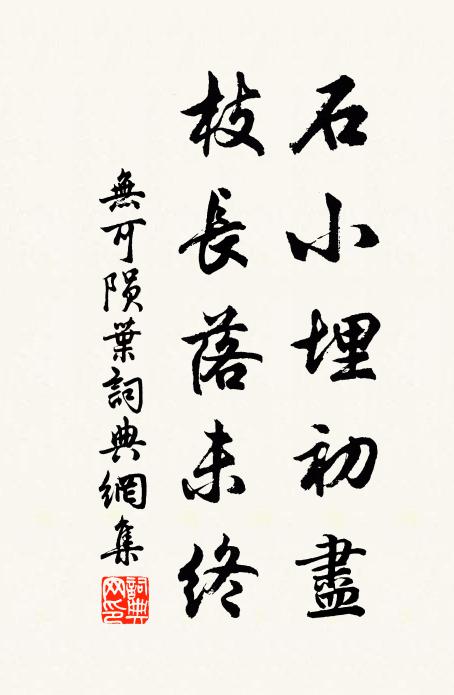 石小埋初盡
枝長落未終
無可隕葉詞典網集
詞典網印